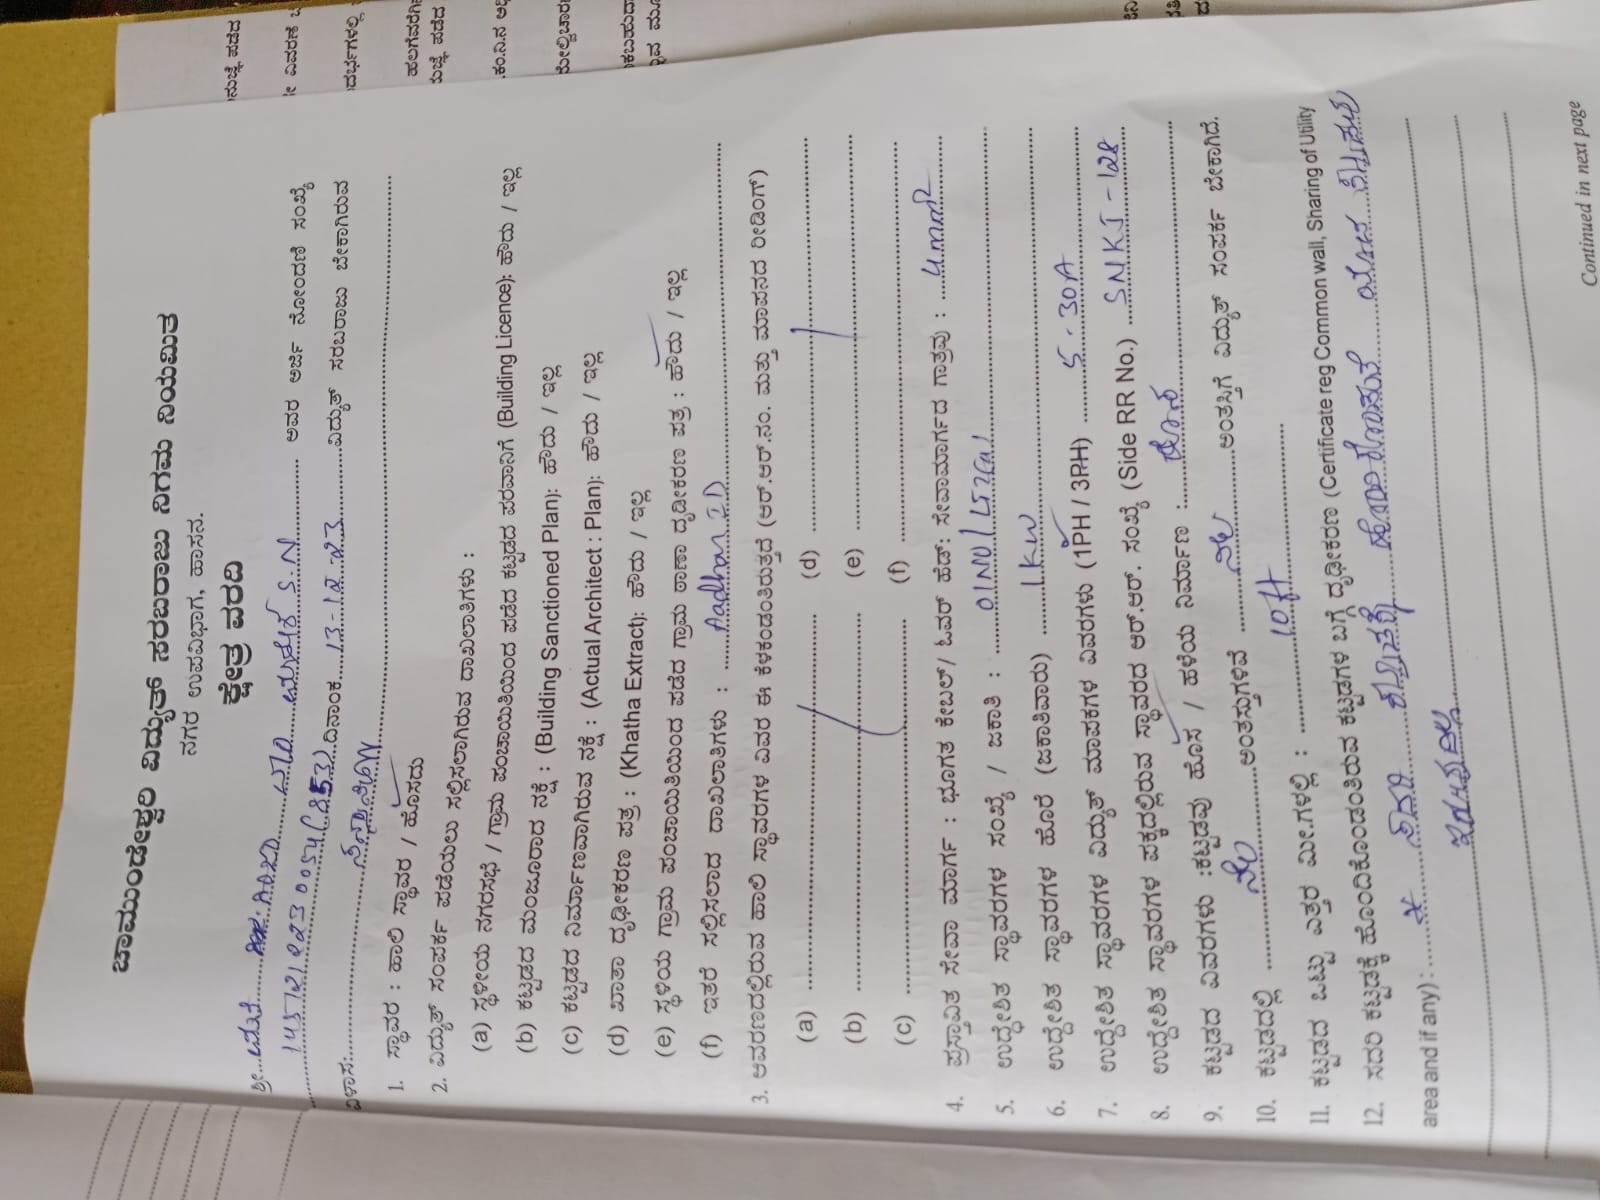 ಚಾಮುಂಡೇಶ್ವರಿ ವಿದ್ಯುತ್ ಸರಬರಾಜು ನಿಗಮ ನಿಯಮಿತ
ನಗರ ಉಪವಿಭಾಗ, ಹಾಸನ.
ಕ್ಷೇತ್ರ ವರದಿ
ಶ್ರೀ S.N ಅವರ ಅರ್ಜಿ ನೋಂದಣಿ ಸಂಖ್ಯೆ
ದಿನಾಂಕ 13-12-23 ವಿದ್ಯುತ್ ಸರಬರಾಜು ಬೇಕಾಗಿರುವ
ವಿಳಾಸ:
1. ಸ್ಥಾವರ : ಹಾಲಿ ಸ್ಥಾವರ / ಹೊಸದು
2. ವಿದ್ಯುತ್ ಸಂಪರ್ಕ ಪಡೆಯಲು ಸಲ್ಲಿಸಲಾಗಿರುವ ದಾಖಲಾತಿಗಳು :
(a) ಸ್ಥಳೀಯ ನಗರಸಭೆ / ಗ್ರಾಮ ಪಂಚಾಯಿತಿಯಿಂದ ಪಡೆದ ಕಟ್ಟಡದ ಪರವಾನಿಗೆ (Building Licence): ಹೌದು / ಇಲ್ಲ
(b) ಕಟ್ಟಡದ ಮಂಜೂರಾದ ನಕ್ಷೆ : (Building Sanctioned Plan): ಹೌದು / ಇಲ್ಲ
(c) ಕಟ್ಟಡದ ನಿರ್ಮಾಣವಾಗಿರುವ ನಕ್ಷೆ : (Actual Architect : Plan): ಹೌದು / ಇಲ್ಲ
(d) ಖಾತಾ ದೃಢೀಕರಣ ಪತ್ರ : (Khatha Extract): ಹೌದು / ಇಲ್ಲ
(e) ಸ್ಥಳೀಯ ಗ್ರಾಮ ಪಂಚಾಯಿತಿಯಿಂದ ಪಡೆದ ಗ್ರಾಮ ಠಾಣಾ ದೃಢೀಕರಣ ಪತ್ರ : ಹೌದು / ಇಲ್ಲ
(f) ಇತರೆ ಸಲ್ಲಿಸಲಾದ ದಾಖಲಾತಿಗಳು : Aadhar ID
3. ಆವರಣದಲ್ಲಿರುವ ಹಾಲಿ ಸ್ಥಾವರಗಳ ವಿವರ ಈ ಕೆಳಕಂಡಂತಿರುತ್ತದೆ (ಆರ್.ಆರ್.ನಂ. ಮತ್ತು ಮಾಪನದ ರೀಡಿಂಗ್)
(a) (d)
(b) (e)
(c) (f)
4. ಪ್ರಸ್ತಾವಿತ ಸೇವಾ ಮಾರ್ಗ : ಭೂಗತ ಕೇಬಲ್/ ಓವರ್ ಹೆಡ್: ಸೇವಾಮಾರ್ಗದ ಗಾತ್ರವು :
5. ಉದ್ದೇಶಿತ ಸ್ಥಾವರಗಳ ಸಂಖ್ಯೆ / ಜಕಾತಿ :
6. ಉದ್ದೇಶಿತ ಸ್ಥಾವರಗಳ ಹೊರೆ (ಜಕಾತಿವಾರು) 1KW
7. ಉದ್ದೇಶಿತ ಸ್ಥಾವರಗಳ ವಿದ್ಯುತ್ ಮಾಪಕಗಳ ವಿವರಗಳು (1PH / 3PH) 5-30A
8. ಉದ್ದೇಶಿತ ಸ್ಥಾವರಗಳ ಪಕ್ಕದಲ್ಲಿರುವ ಸ್ಥಾವರದ ಆರ್.ಆರ್. ಸಂಖ್ಯೆ (Side RR No.) SNKJ-128
9. ಕಟ್ಟಡದ ವಿವರಗಳು :ಕಟ್ಟಡವು ಹೊಸ / ಹಳೆಯ ನಿರ್ಮಾಣ :
10. ಕಟ್ಟಡದಲ್ಲಿ ನೆಲ ಅಂತಸ್ತುಗಳಿವೆ ನೆಲ ಅಂತಸ್ತಿಗೆ ವಿದ್ಯುತ್ ಸಂಪರ್ಕ ಬೇಕಾಗಿದೆ.
11. ಕಟ್ಟಡದ ಒಟ್ಟು ಎತ್ತರ ಮೀ.ಗಳಲ್ಲಿ : 10ft
12. ಸದರಿ ಕಟ್ಟಡಕ್ಕೆ ಹೊಂದಿಕೊಂಡಂತಿರುವ ಕಟ್ಟಡಗಳ ಬಗ್ಗೆ ದೃಢೀಕರಣ (Certificate reg Common wall, Sharing of Utility
area and if any) : * ಸದರಿ
Continued in next page